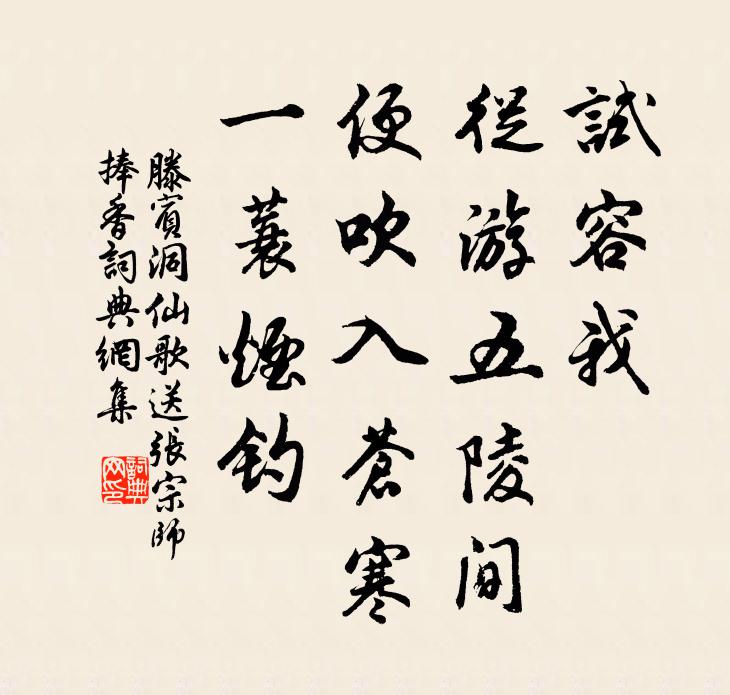 試容我
從游五陵間
便吹入蒼寒
一蓑煙釣
滕賓洞仙歌送張宗師
捧香詞典網集
詞典網印